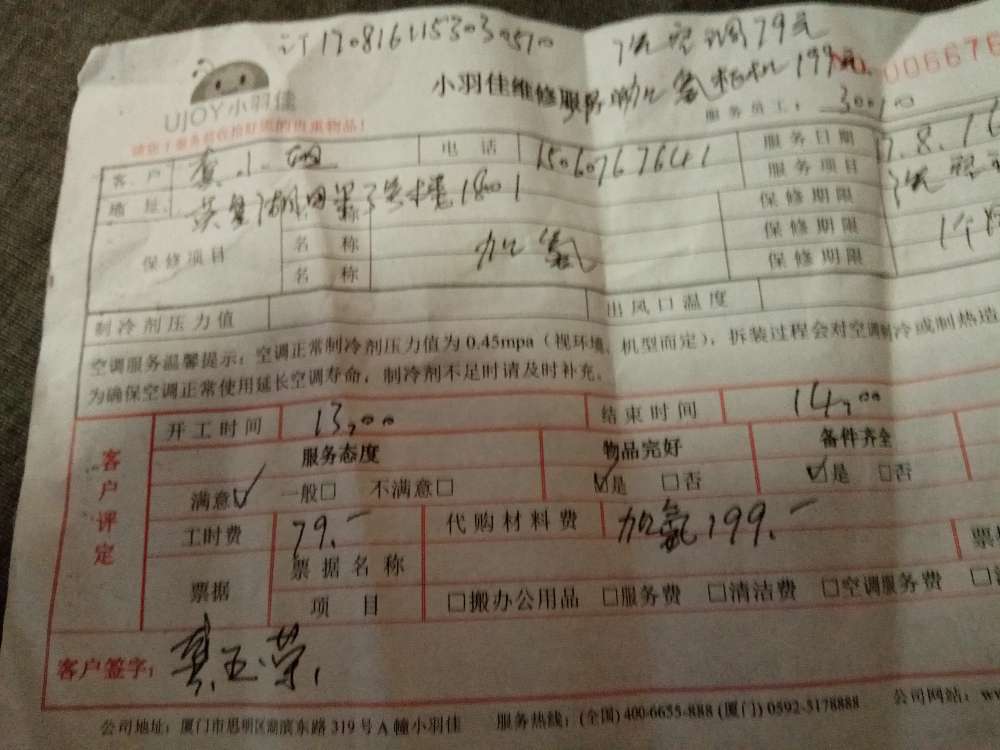 订1708161153030510
洗空调79元
UJOY小羽佳
小羽佳维修服务单
加氟 199元
006676
服务员工：
客户
电话 1506767641
服务日期 17.8.16
地址
1801
服务项目 洗空
名称
保修期限
保修项目
名称 加氟
保修期限 1个
名称
保修期限
制冷剂压力值
出风口温度
空调服务温馨提示：空调正常制冷剂压力值为0.45mpa（视环境、机型而定），拆装过程会对空调制冷或制热造
为确保空调正常使用延长空调寿命，制冷剂不足时请及时补充。
客户评定
开工时间 13:00
结束时间 14:00
服务态度
物品完好
备件齐全
满意☑ 一般□ 不满意□
☑是 □否
☑是 □否
工时费 79.-
代购材料费 加氟199.-
票据
票据名称
项目
□搬办公用品 □服务费 □清洁费 □空调服务费
客户签字：
公司地址：厦门市思明区湖滨东路319号A幢小羽佳 服务热线：(全国) 400-6655-888 (厦门) 0592-5178888 公司网站：